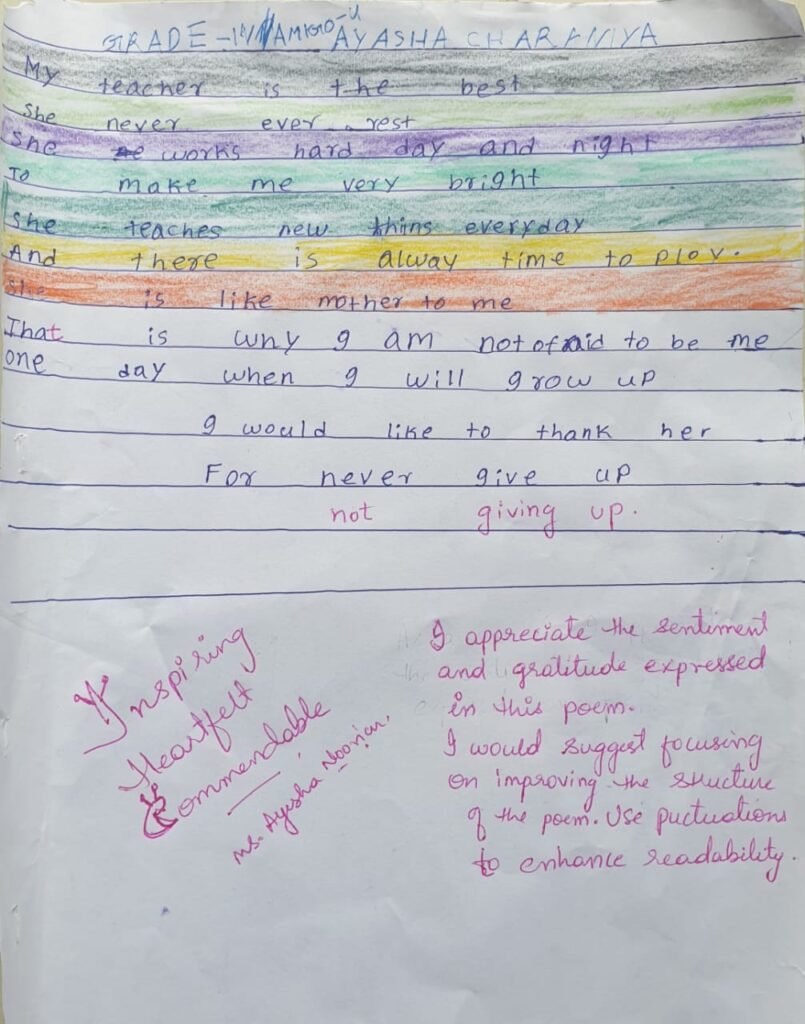 GRADE - IV AMIGO-U AYASHA CHARANIYA
My teacher is the best
She never ever rest
She works hard day and night
To make me very bright
She teaches new thins everyday
And there is alway time to play.
She is like mother to me
That is why I am not ofraid to be me
one day when I will grow up
I would like to thank her
For never give up
not giving up.
Inspiring
Heartfelt
Commendable
Ms. Ayesha Noorian.
I appreciate the sentiment
and gratitude expressed
in this poem.
I would suggest focusing
on improving the structure
of the poem. Use puctuations
to enhance readability.